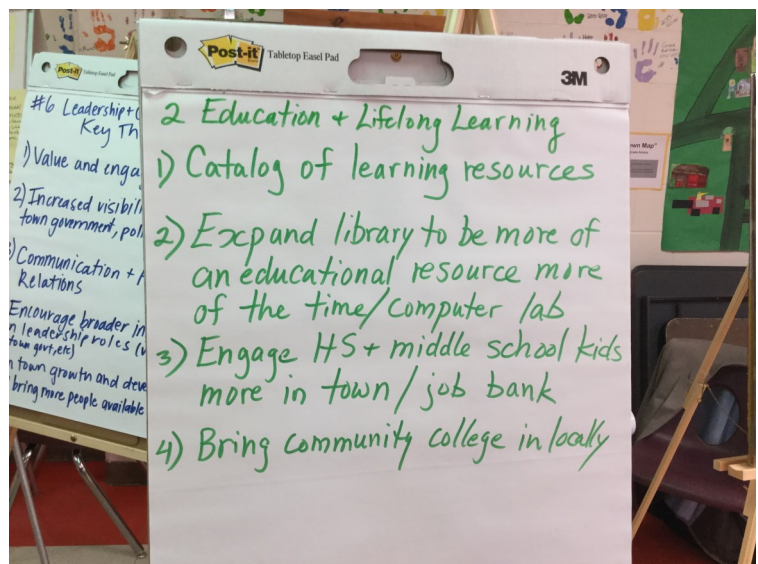 Post-it Tabletop Easel Pad
3M
2 Education + Lifelong Learning
1) Catalog of learning resources
2) Expand library to be more of
an educational resource more
of the time/computer lab
3) Engage HS + middle school kids
more in town / job bank
4) Bring community college in locally
Post-it Tabletop Easel Pad
#6 Leadership +
Key Th
1) Value and enga
2) Increased visibili
town government, pol
Communication +
Relations
Encourage broader in
leadership roles
town govt, etc)
town growth and deve
bring more people available
own Map"